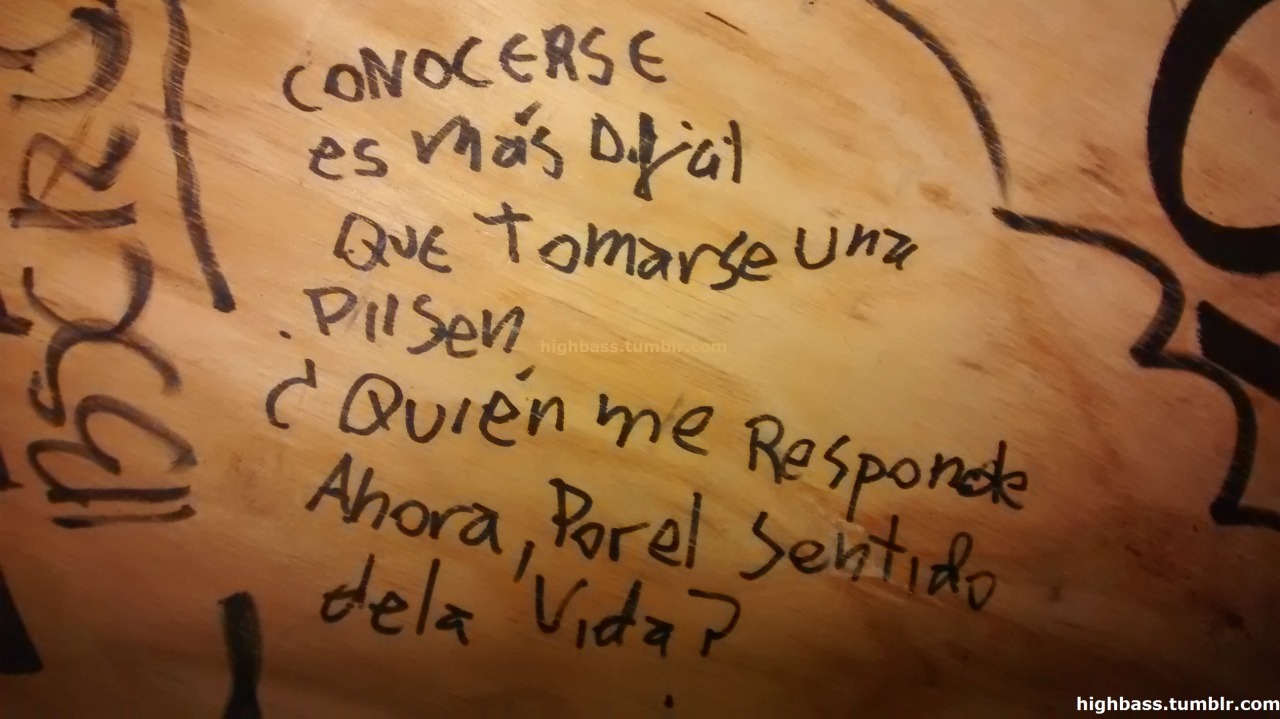 CONOCERSE
es más Difícil
QUE tomarse una
. Pilsen
¿Quién me Responde
Ahora, Por el Sentido
de la Vida?
highbass.tumblr.com
highbass.tumblr.com